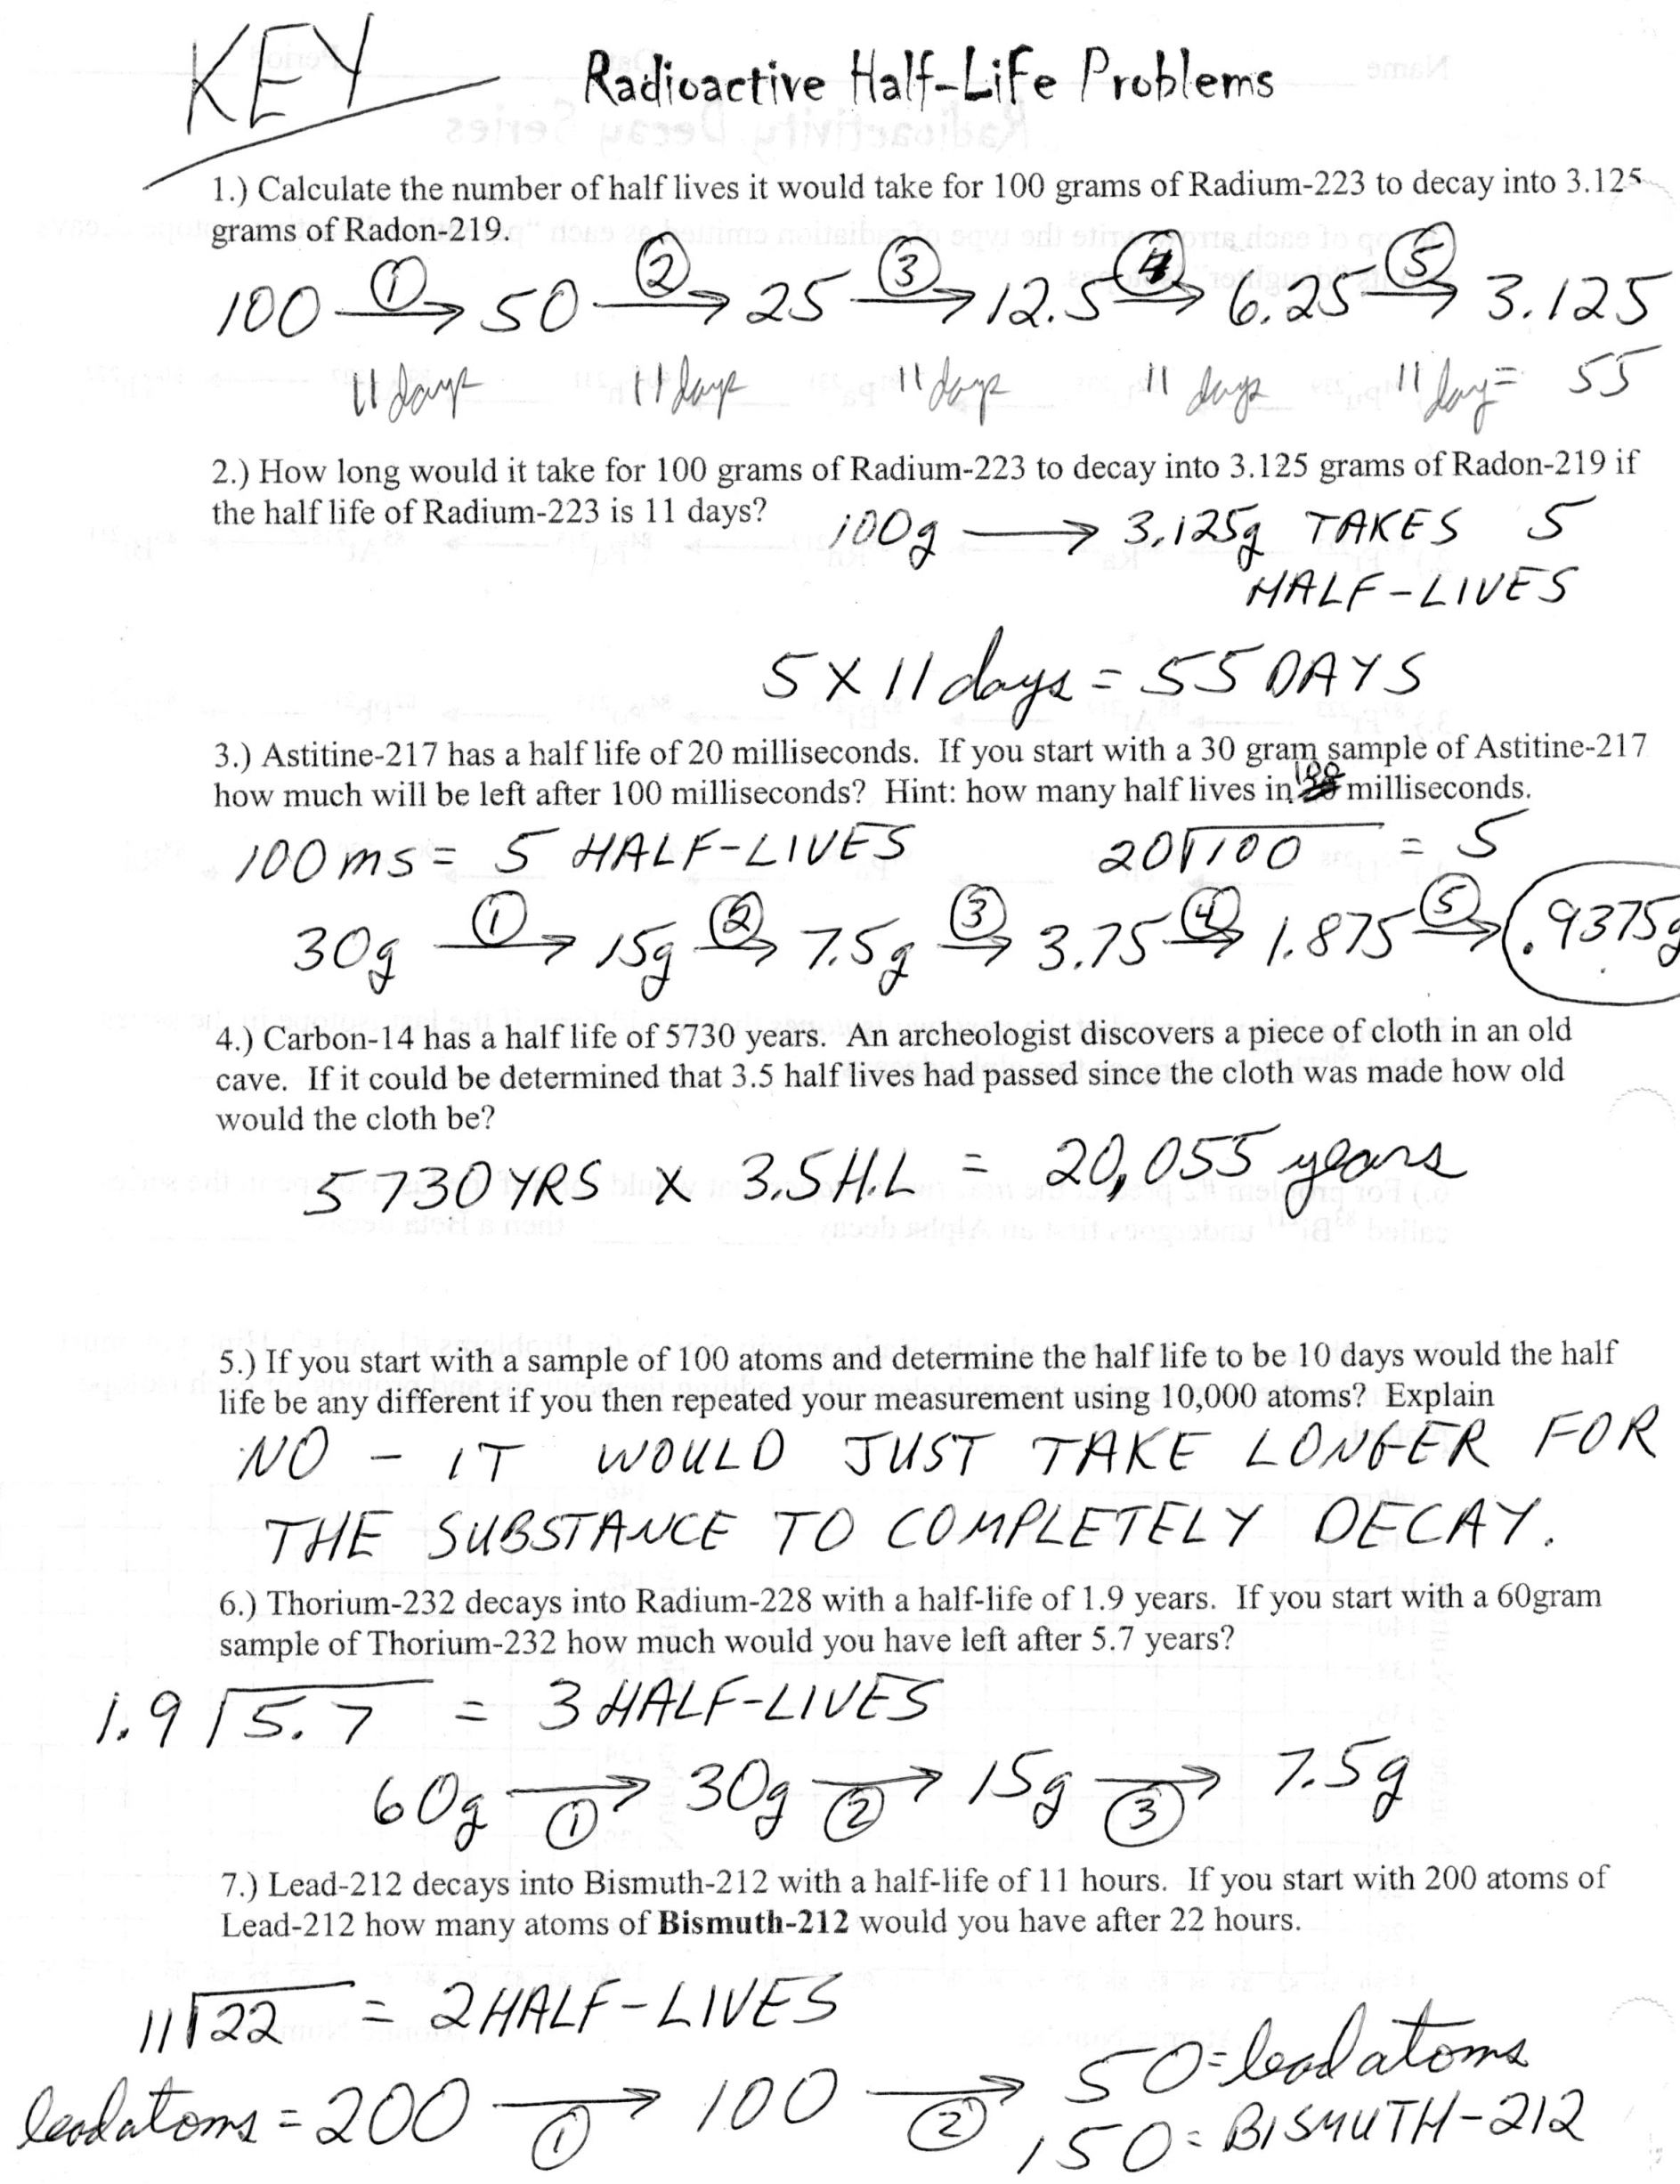 KEY Radioactive Half-Life Problems
1.) Calculate the number of half lives it would take for 100 grams of Radium-223 to decay into 3.125
grams of Radon-219.
① ② ③ ④ ⑤
100 → 50 → 25 → 12.5 → 6.25 → 3.125
11 days 11 days 11 days 11 days 11 day = 55
2.) How long would it take for 100 grams of Radium-223 to decay into 3.125 grams of Radon-219 if
the half life of Radium-223 is 11 days?
100g → 3.125g TAKES 5
HALF-LIVES
5 X 11 days = 55 DAYS
3.) Astitine-217 has a half life of 20 milliseconds. If you start with a 30 gram sample of Astitine-217
how much will be left after 100 milliseconds? Hint: how many half lives in 100 milliseconds.
100 ms = 5 HALF-LIVES 20√100 = 5
① ② ③ ④ ⑤
30g → 15g → 7.5g → 3.75 → 1.875 → .9375g
4.) Carbon-14 has a half life of 5730 years. An archeologist discovers a piece of cloth in an old
cave. If it could be determined that 3.5 half lives had passed since the cloth was made how old
would the cloth be?
5730 YRS X 3.5 H.L = 20,055 years
5.) If you start with a sample of 100 atoms and determine the half life to be 10 days would the half
life be any different if you then repeated your measurement using 10,000 atoms? Explain
NO - IT WOULD JUST TAKE LONGER FOR
THE SUBSTANCE TO COMPLETELY DECAY.
6.) Thorium-232 decays into Radium-228 with a half-life of 1.9 years. If you start with a 60gram
sample of Thorium-232 how much would you have left after 5.7 years?
1.9√5.7 = 3 HALF-LIVES
60g → 30g → 15g → 7.5g
① ② ③
7.) Lead-212 decays into Bismuth-212 with a half-life of 11 hours. If you start with 200 atoms of
Lead-212 how many atoms of Bismuth-212 would you have after 22 hours.
11√22 = 2 HALF-LIVES
lead atoms = 200 → 100 → 50 = lead atoms
① ② 150 = BISMUTH-212